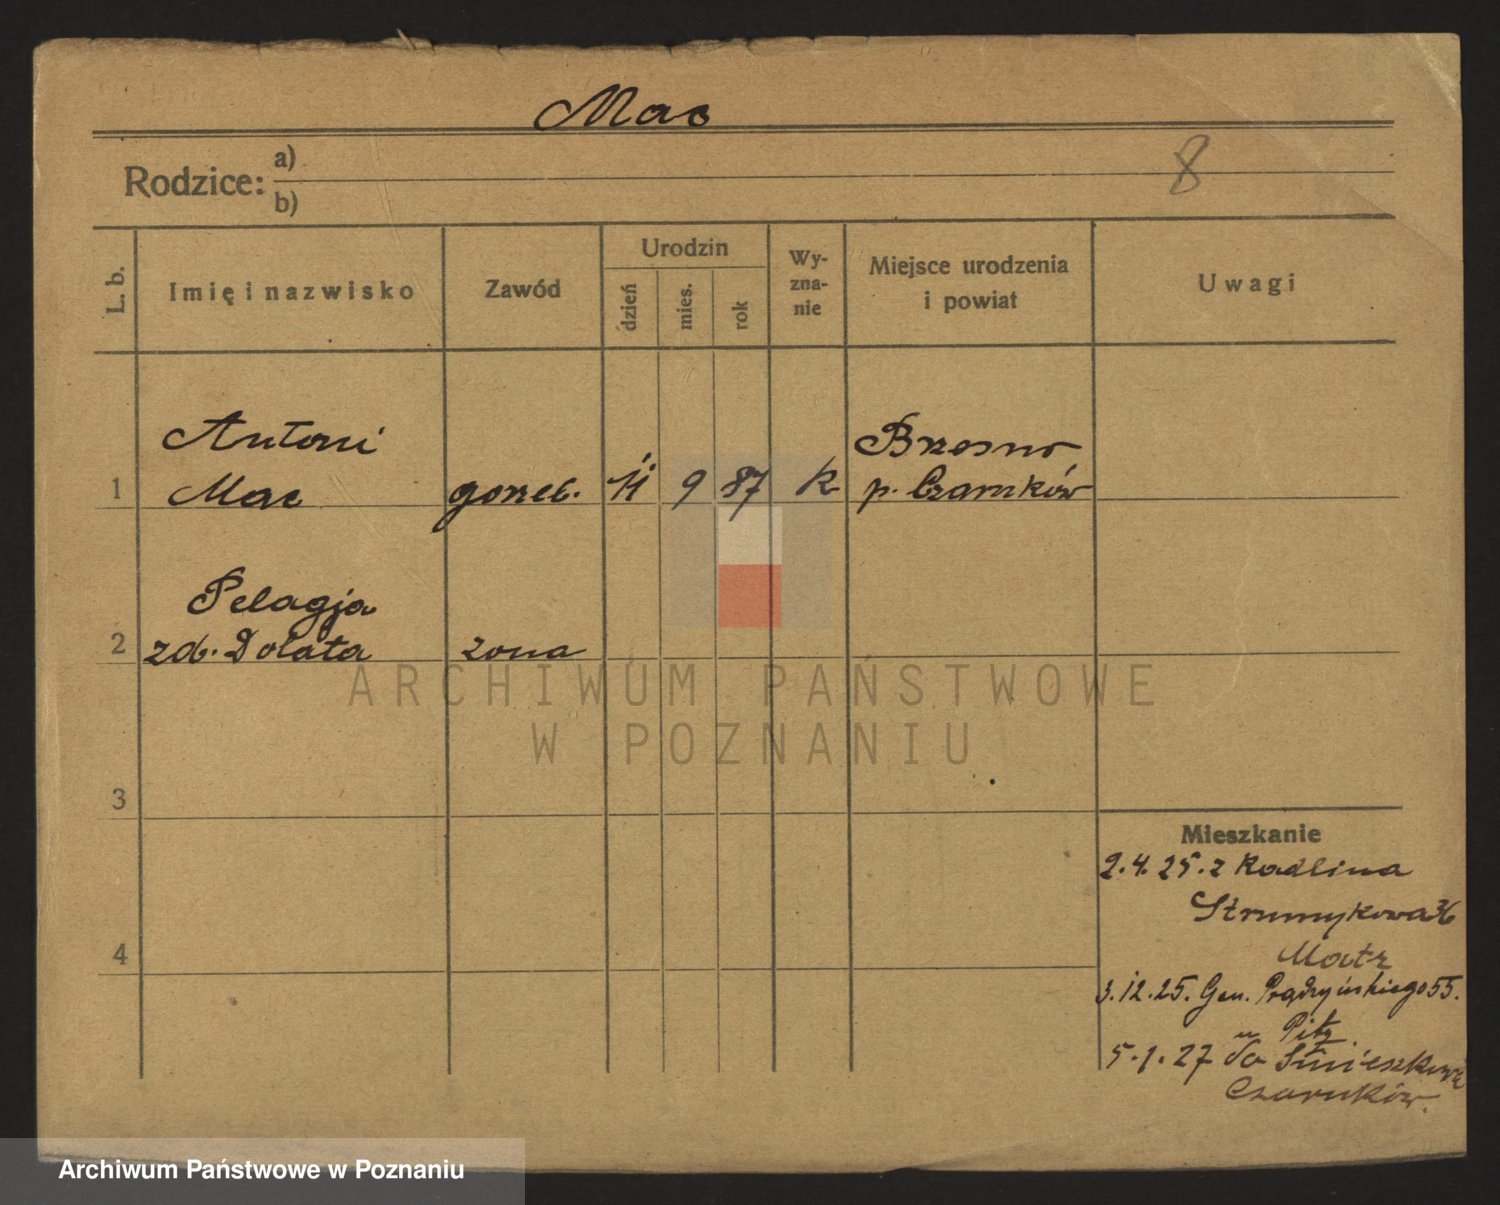 Mac
8
Rodzice: a)
b)
L. b.
Imię i nazwisko
Zawód
Urodzin
dzień
mies.
rok
Wy-
zna-
nie
Miejsce urodzenia
i powiat
Uwagi
Antoni
Brzesno
1 Mac gorzel. 11 9 87 k p. Czarnków
Pelagja
2 zd. Dolata zona
ARCHIWUM PAŃSTWOWE
W POZNANIU
3
Mieszkanie
2.4.25. z Radlina
Strumykowa 36
4
3.12.25. Gen. Prądzyńskiego 55.
5.1.27 do
Czarnków.
Archiwum Państwowe w Poznaniu